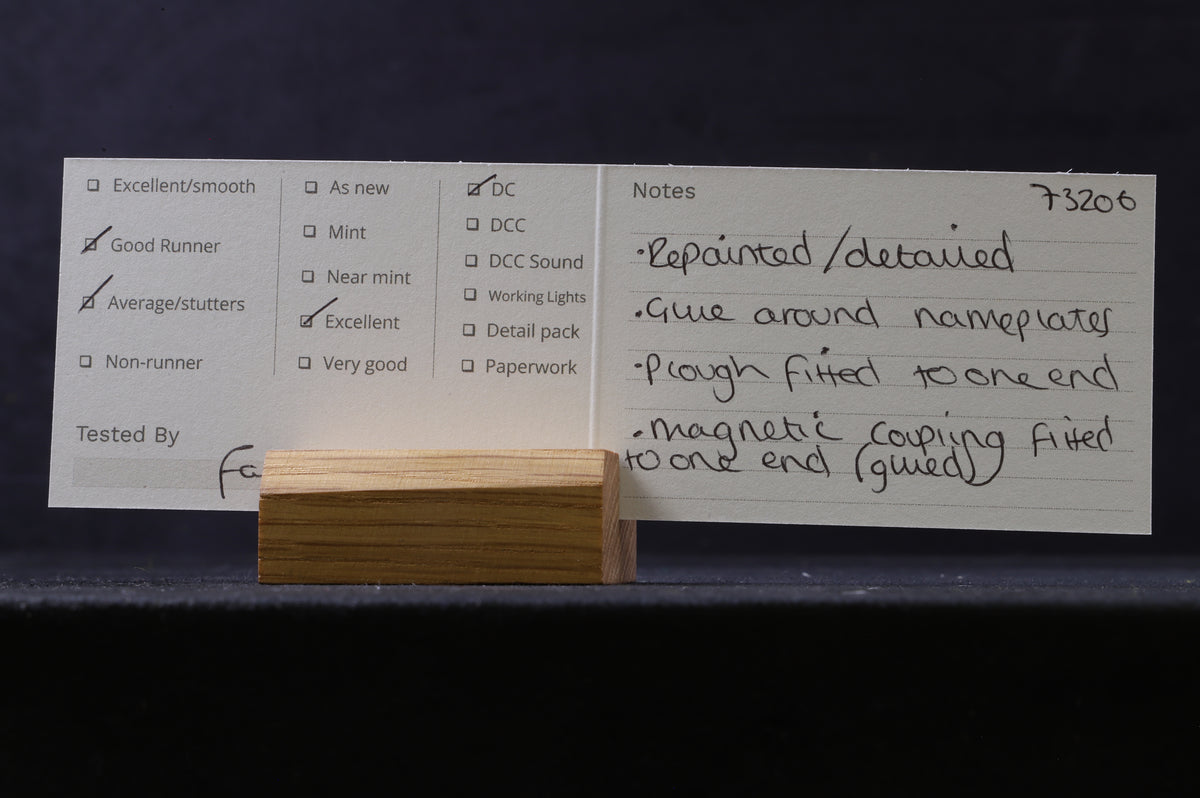 Excellent/smooth
Good Runner
Average/stutters
Non-runner
Tested By
As new
Mint
Near mint
Excellent
Very good
DC
DCC
DCC Sound
Working Lights
Detail pack
Paperwork
Notes
73206
·Repainted/detailed
·Glue around nameplates
·Plough fitted to one end
·magnetic coupling fitted
to one end (glued)